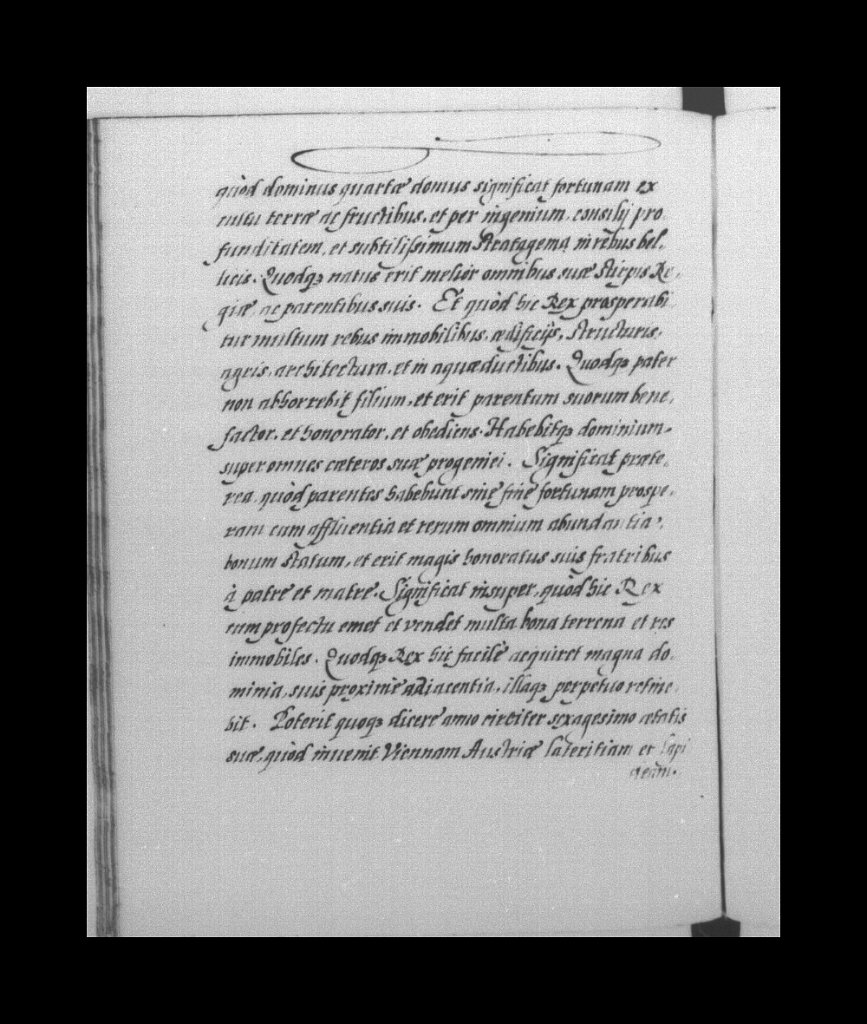 quòd dominus quartæ domus significat fortunam ex
cultu terræ ac fructibus, et per ingenium, consilij pro,
funditatem, et subtilissimum stratagema in rebus bel,
licis. Quodq3 natus erit melior omnibus suæ stirpis Re,
giæ, ac parentibus suis. Et quòd hic Rex prosperabi
tur multum rebus immobilibus, ædificijs, structuris,
agris, architectura, et in aquæductibus. Quodq3 pater
non abhorrebit filium, et erit parentum suorum bene,
factor, et honorator, et obediens. Habebitq3 dominium
super omnes cæteros suæ progeniei. Significat præte,
rea, quòd parentes habebunt sine fine fortunam prospe,
ram cum affluentia et rerum omnium abundantia,
bonum statum, et erit magis honoratus suis fratribus
à patre et matre. Significat insuper, quòd hic Rex
cum profectu emet et vendet multa bona terrena et res
immobiles. Quodq3 Rex hic facilè acquiret magna do,
minia, suis proximè adiacentia, illaq3 perpetuo retine,
bit. Poterit quoq3 dicere anno circiter sexagesimo ætatis
suæ, quòd invenit Viennam Austriæ lateritiam et lapi
deam.